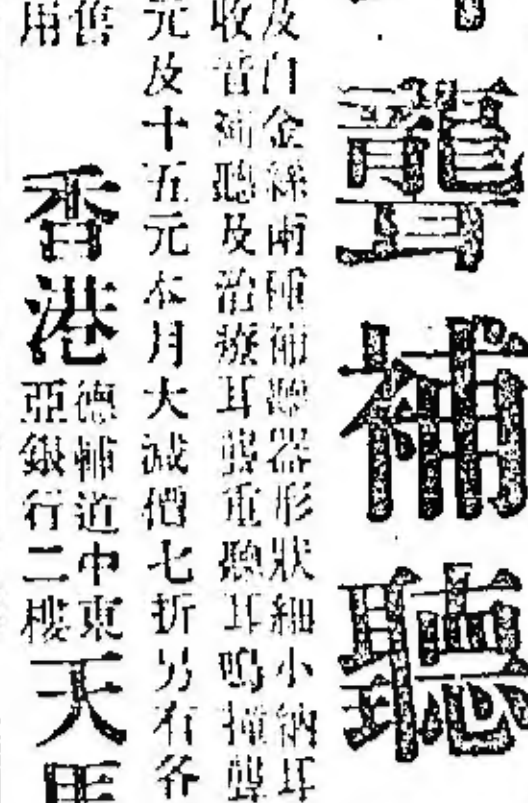 聾補聽
及白金絲兩種補聽器形狀細小納耳
收音補聽及治療耳聾重聽耳鳴撞聾
元及十五元本月大減價七折另有各
舊
用
香港
德輔道中東
亞銀行二樓
天馬